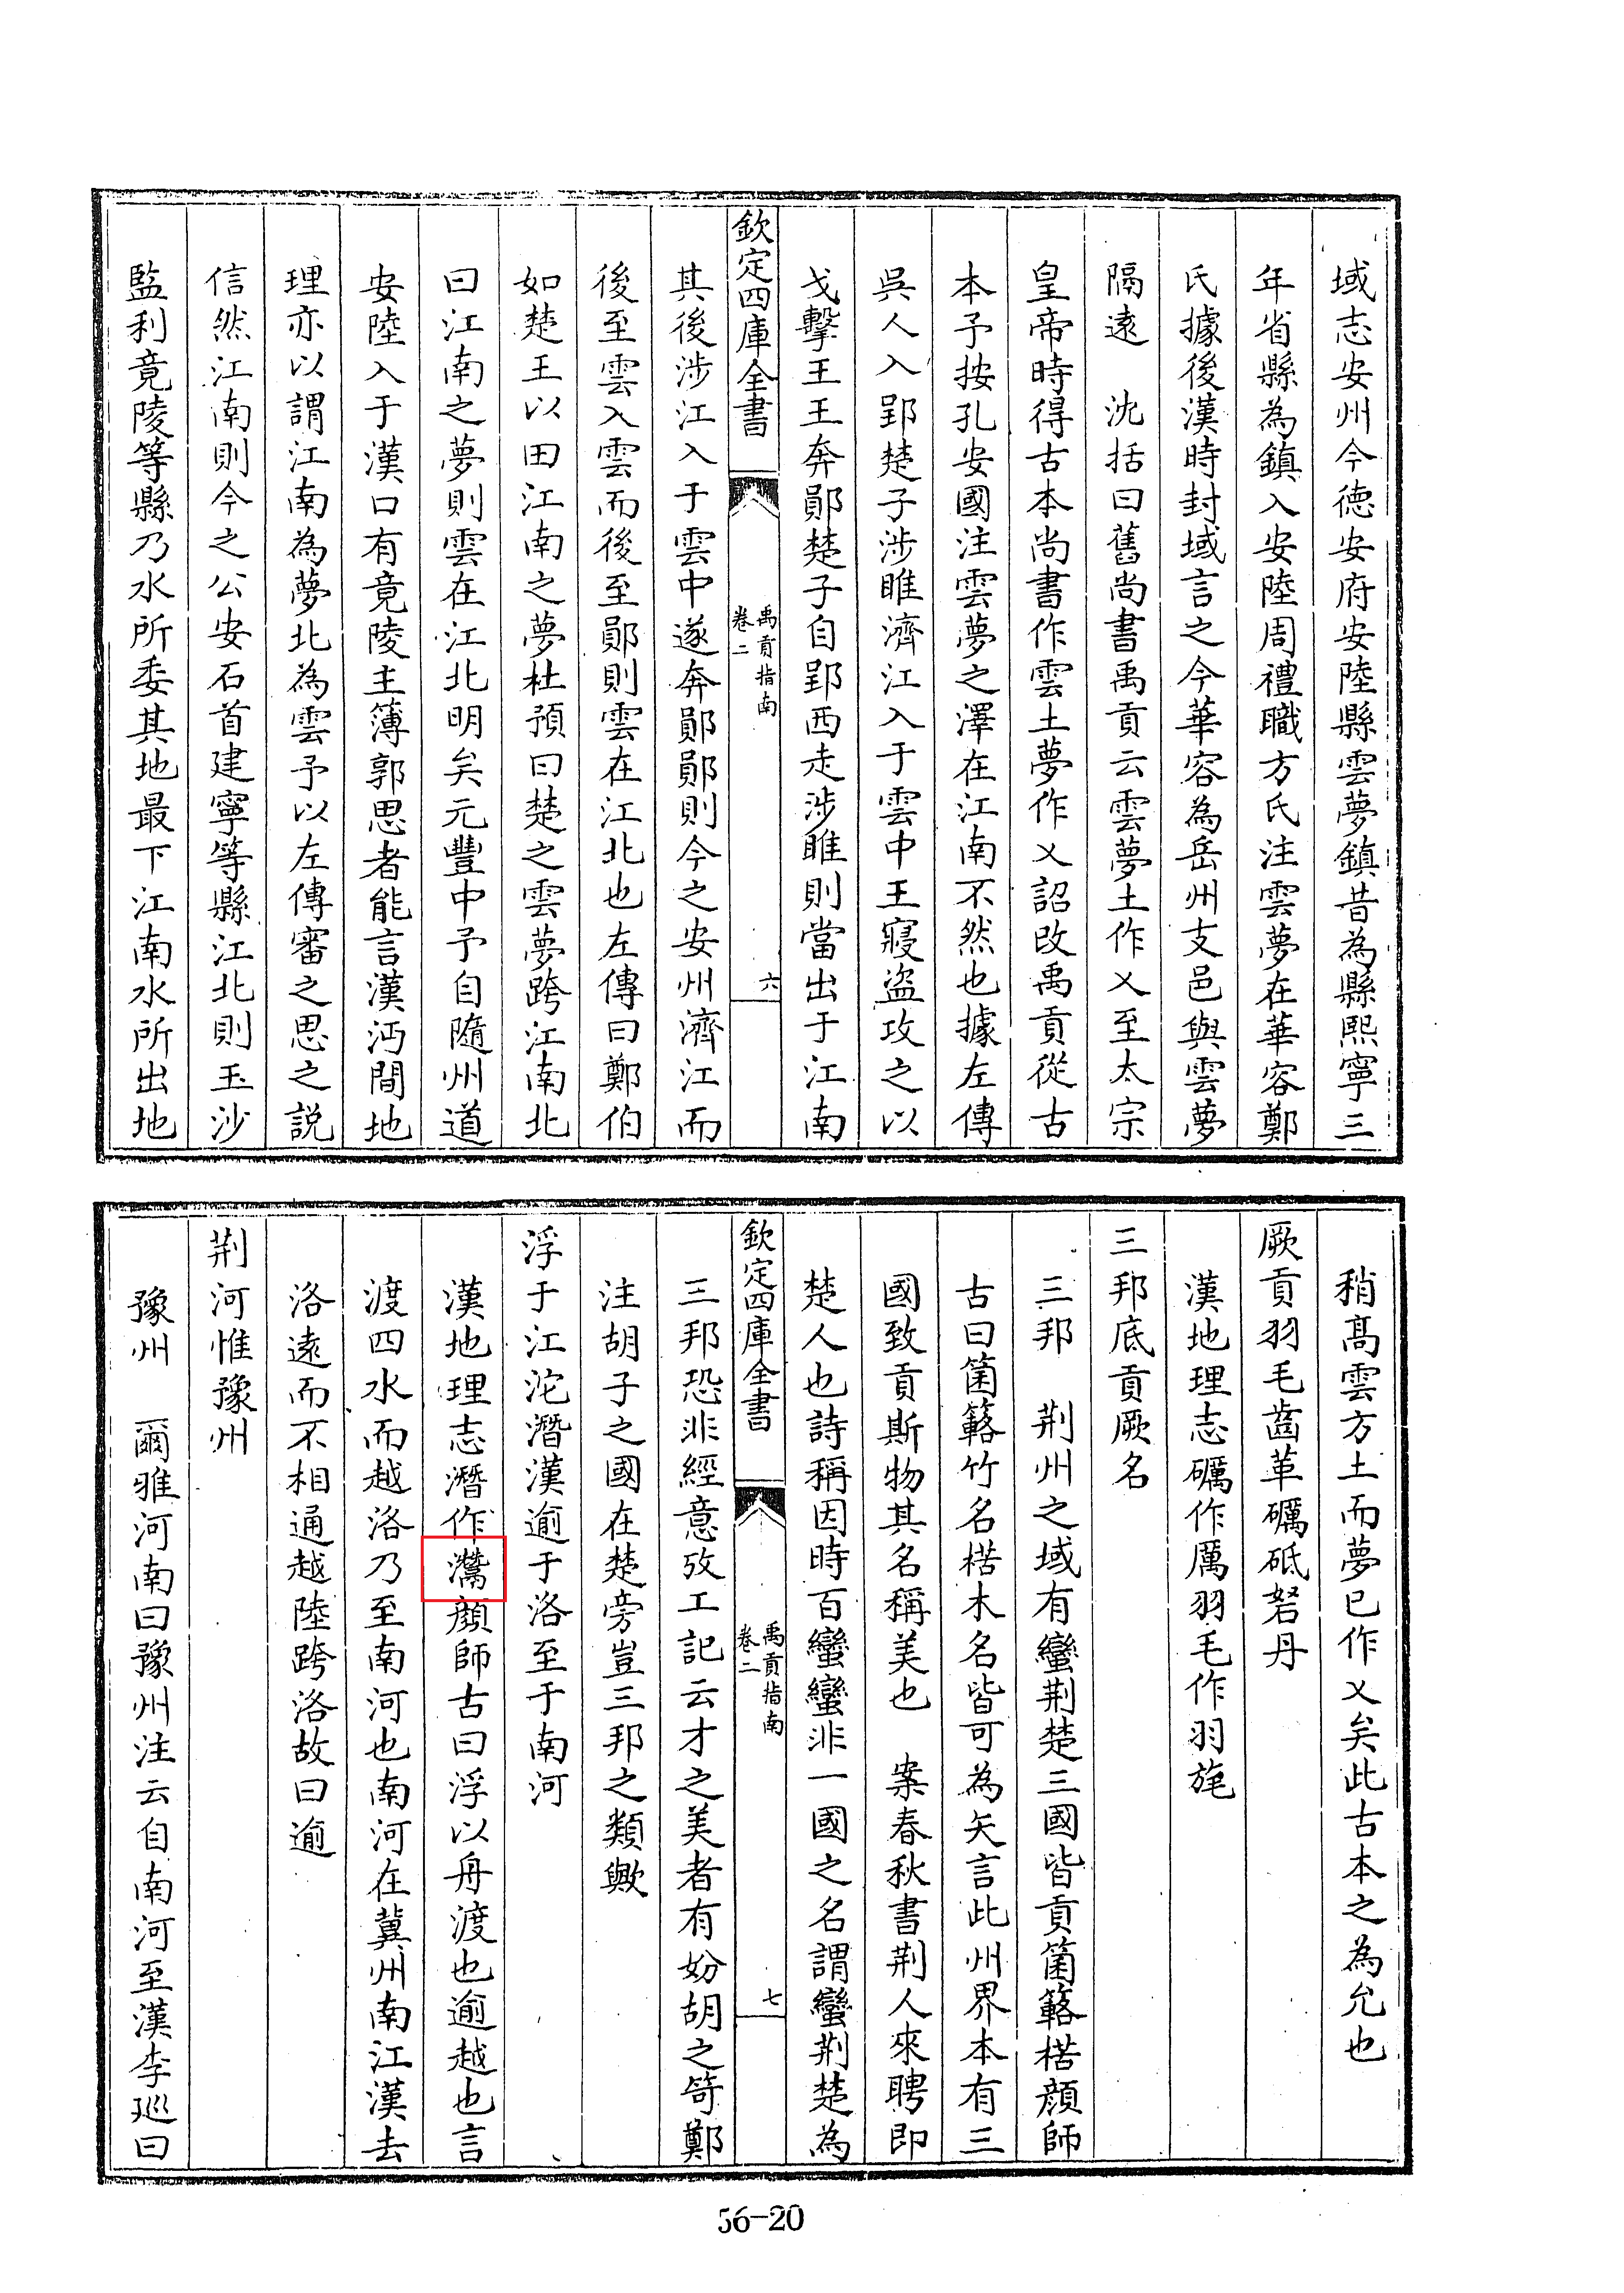 域志安州今德安府安陸縣雲夢鎮昔為縣熙寧三
年省縣為鎮入安陸周禮職方氏注雲夢在華容鄭
氏據後漢時封域言之今華容為岳州支邑與雲夢
隔遠　沈括曰舊尚書禹貢云雲夢土作乂至太宗
皇帝時得古本尚書作雲土夢作乂詔改禹貢從古
本予按孔安國注雲夢之澤在江南不然也據左傳
吳人入郢楚子涉睢濟江入于雲中王寢盜攻之以
戈擊王王奔鄖楚子自郢西走涉睢則當出于江南
欽定四庫全書
禹貢指南
卷二
六
其後涉江入于雲中遂奔鄖鄖則今之安州濟江而
後至雲入雲而後至鄖則雲在江北也左傳曰鄭伯
如楚王以田江南之夢杜預曰楚之雲夢跨江南北
曰江南之夢則雲在江北明矣元豐中予自隨州道
安陸入于漢口有竟陵主簿郭思者能言漢沔間地
理亦以謂江南為夢北為雲予以左傳審之思之說
信然江南則今之公安石首建寧等縣江北則玉沙
監利竟陵等縣乃水所委其地最下江南水所出地
稍高雲方土而夢已作乂矣此古本之為允也
厥貢羽毛齒革礪砥砮丹
漢地理志礪作厲羽毛作羽旄
三邦底貢厥名
三邦　荆州之域有蠻荆楚三國皆貢箘簵楛顔師
古曰箘簵竹名楛木名皆可為矢言此州界本有三
國致貢斯物其名稱美也　案春秋書荆人來聘即
楚人也詩稱因時百蠻蠻非一國之名謂蠻荆楚為
欽定四庫全書
禹貢指南
卷二
七
三邦恐非經意攷工記云才之美者有妢胡之笴鄭
注胡子之國在楚旁豈三邦之類歟
浮于江沱潛漢逾于洛至于南河
漢地理志潛作灊顔師古曰浮以舟渡也逾越也言
渡四水而越洛乃至南河也南河在冀州南江漢去
洛遠而不相通越陸跨洛故曰逾
荆河惟豫州
豫州　爾雅河南曰豫州注云自南河至漢李巡曰
56-20